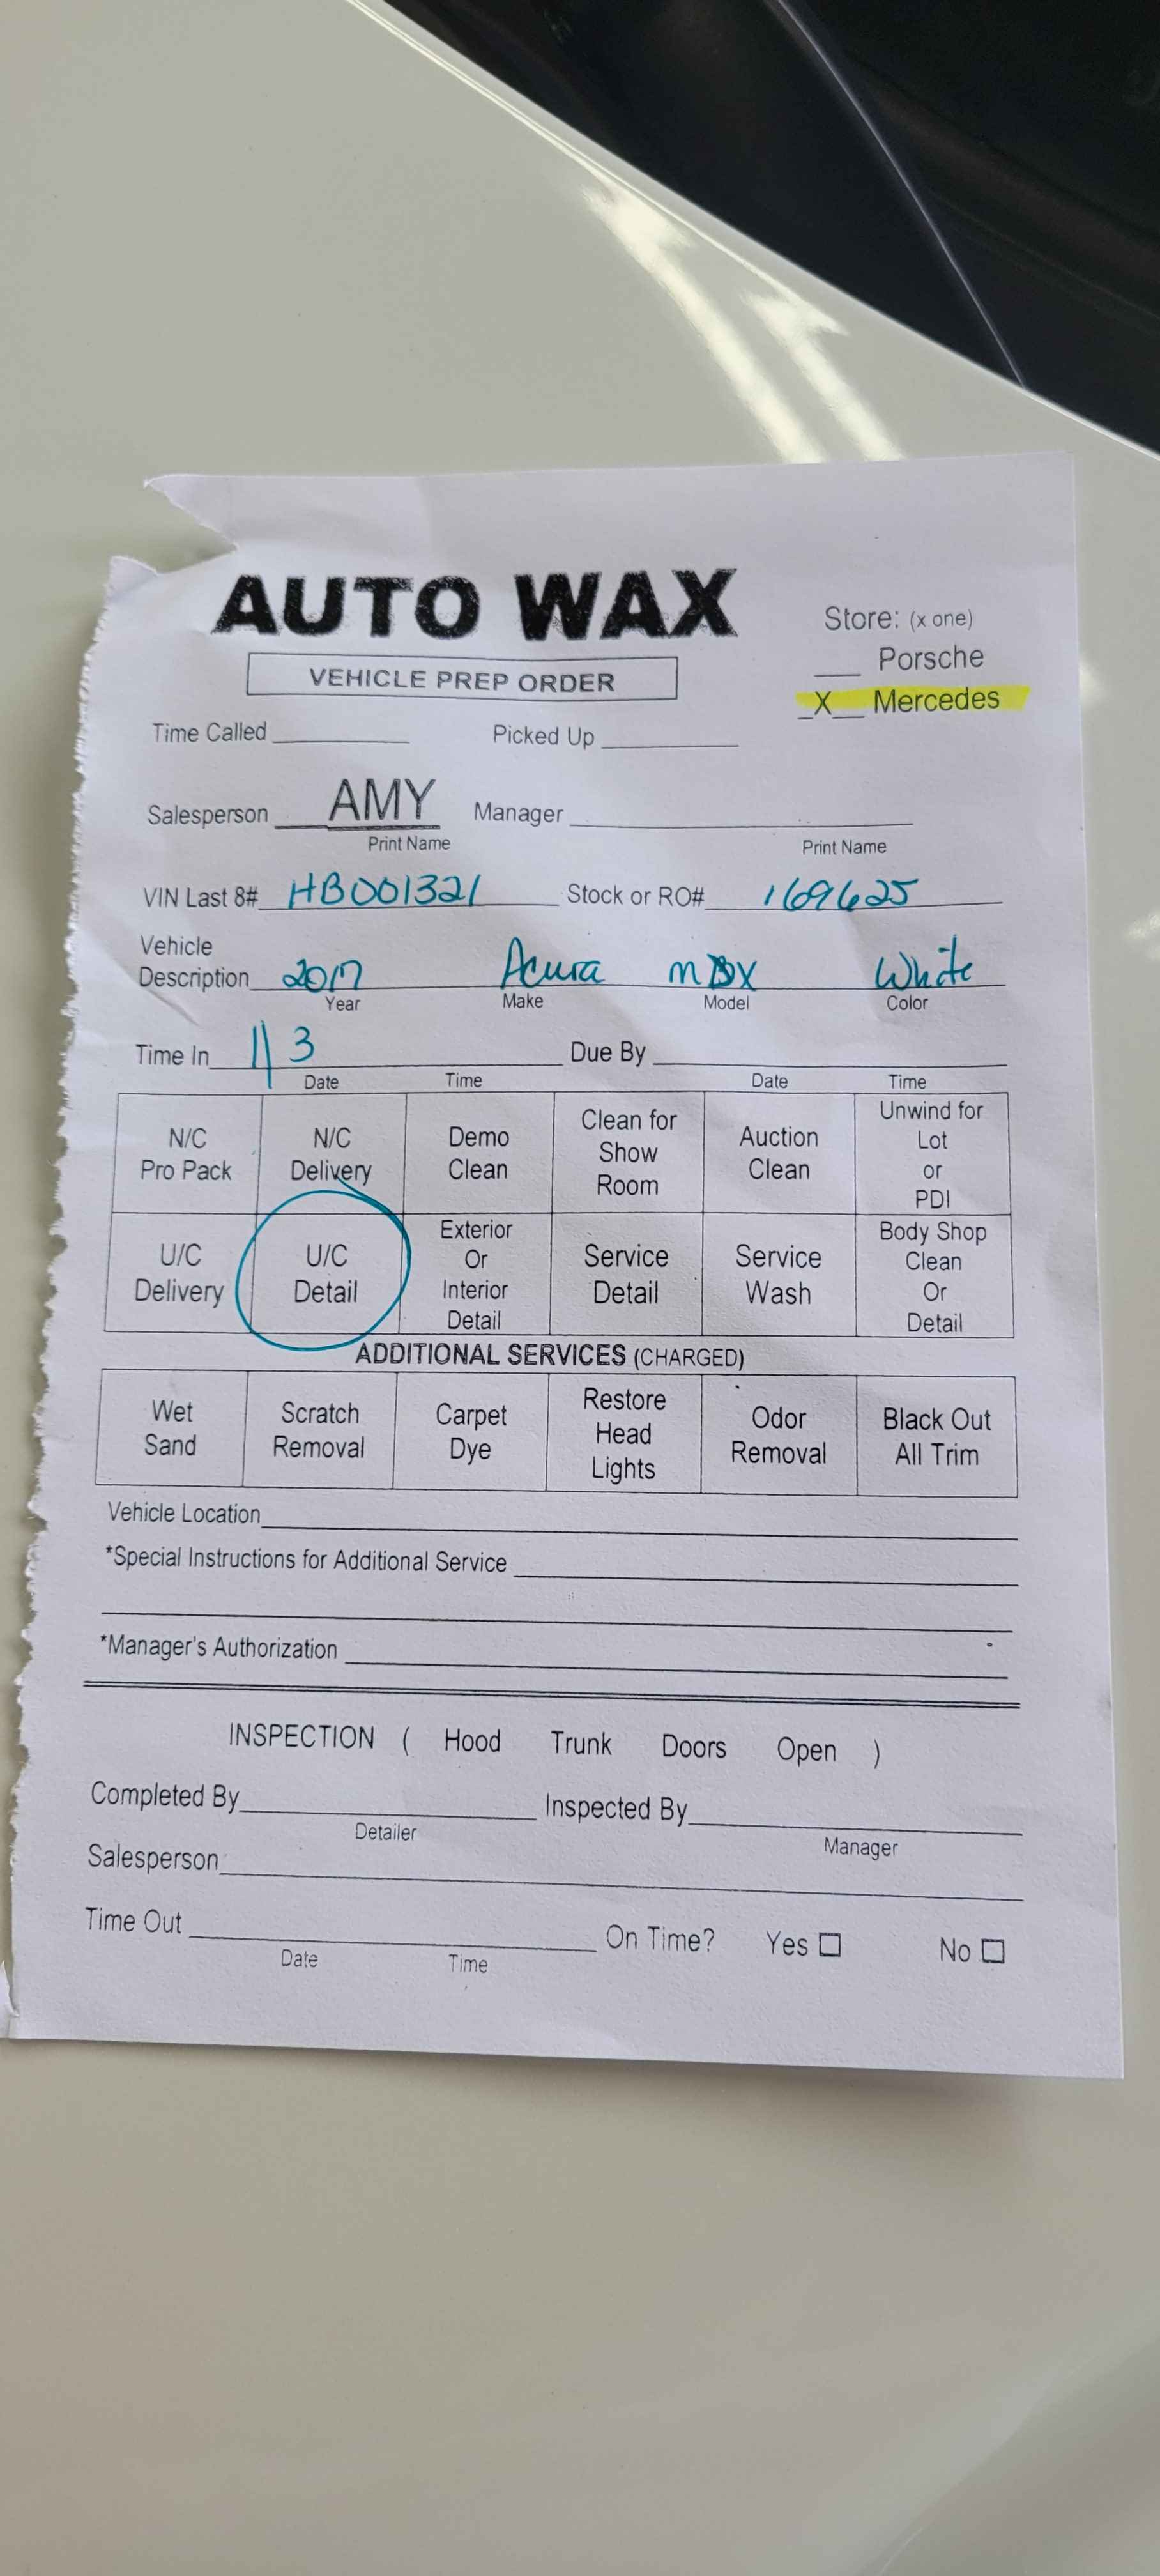 AUTO WAX
Store: (x one)
VEHICLE PREP ORDER
___ Porsche
_X__ Mercedes
Time Called Picked Up
Salesperson AMY Manager
Print Name Print Name
VIN Last 8# HB001321 Stock or RO# 169625
Vehicle
Description 2017 Acura MDX White
Year Make Model Color
Time In 1/3 Due By
Date Time Date Time
N/C Pro Pack
N/C Delivery
Demo Clean
Clean for Show Room
Auction Clean
Unwind for Lot or PDI
U/C Delivery
U/C Detail
Exterior Or Interior Detail
Service Detail
Service Wash
Body Shop Clean Or Detail
ADDITIONAL SERVICES (CHARGED)
Wet Sand
Scratch Removal
Carpet Dye
Restore Head Lights
Odor Removal
Black Out All Trim
Vehicle Location
*Special Instructions for Additional Service
*Manager's Authorization
INSPECTION ( Hood Trunk Doors Open )
Completed By Inspected By
Detailer Manager
Salesperson
Time Out On Time? Yes ☐ No ☐
Date Time